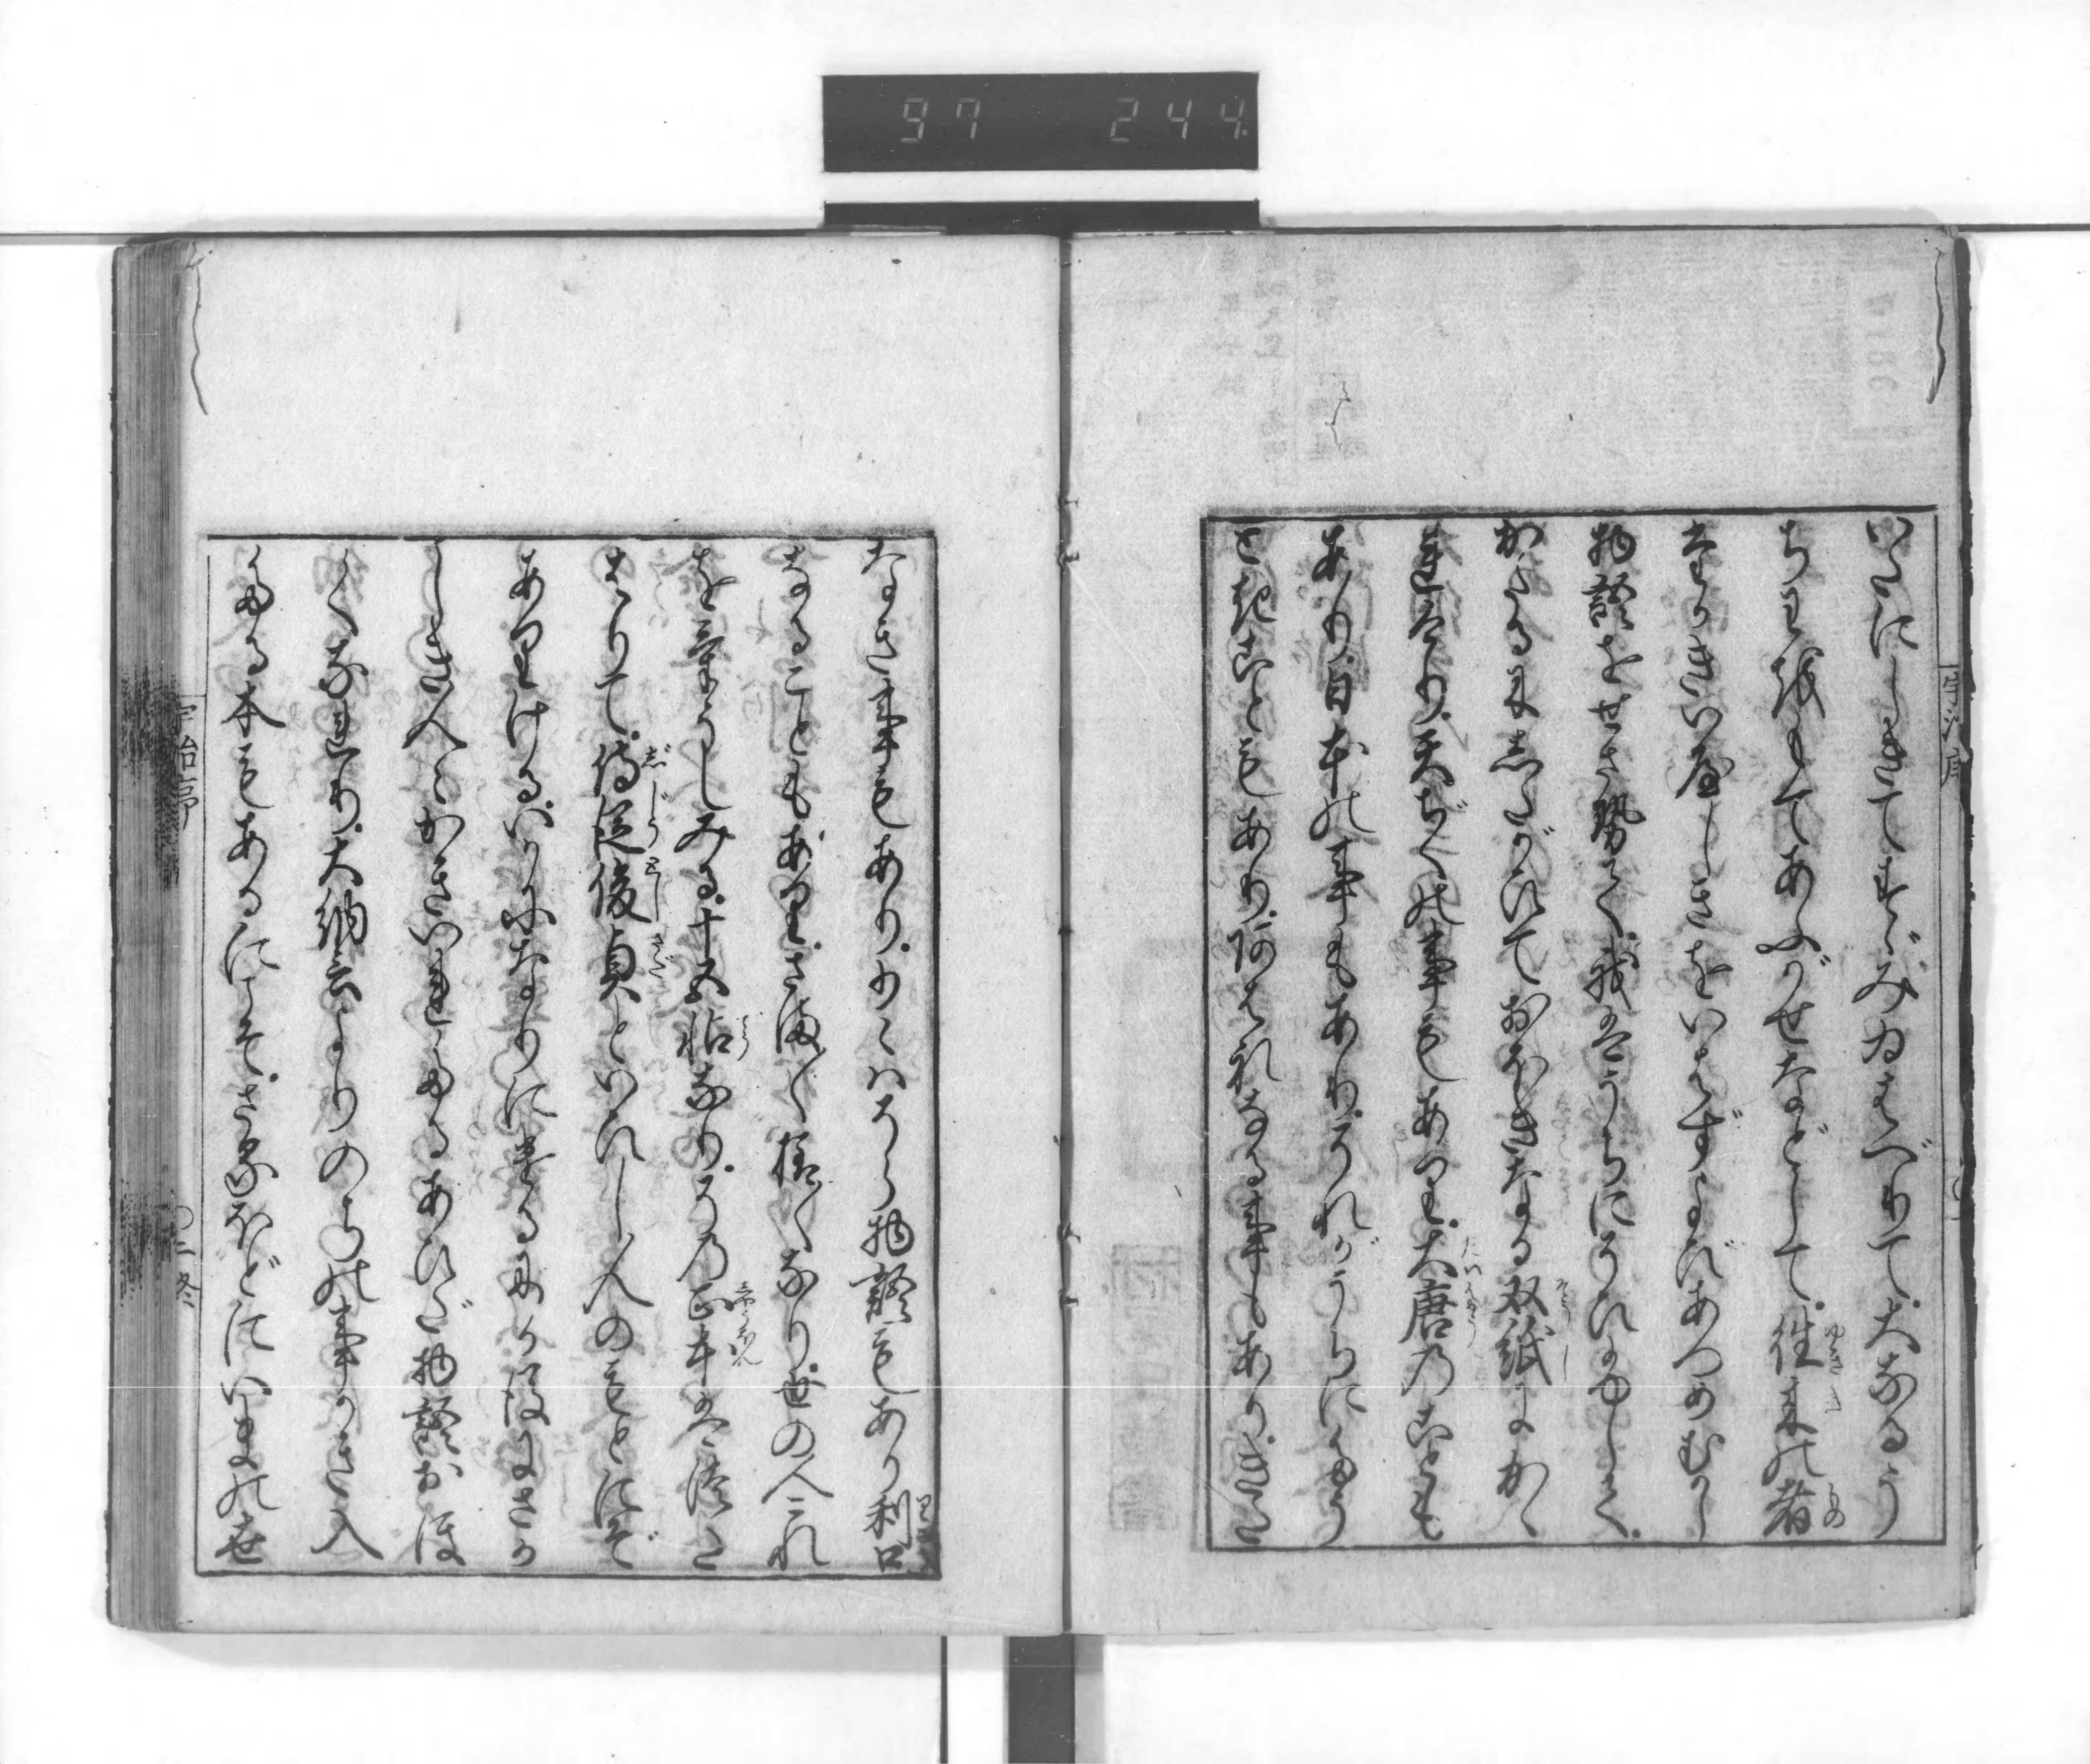 97 244
いたにしきてすゞみゐはべりて。大なるう
ちわをもてあふがせなどして。往来の者
たかきいやしきをいはずよびあつめむかし
物語をせさせて。我はうちにそひふして。
かたるにしたがひておほきなる双紙にかゝ
れけり。天ぢくの事もあり。大唐のことも
あり。日本の事もあり。それがうちにたう
とき事もあり。あはれなる事もあり。きた
なき事もあり。少々はそら物語もあり。利口
なることもあり。さま〴〵様〳〵なり。世の人これ
を興じみる。十五帖なり。その正本は伝
はりて。侍従俊貞といひし人のもとにぞ
ありける。いかになりにけるにか。後にさか
しき人々かきいれたるあひだ。物語おほ
くなれり。大納言よりのちの事かき入
たる本もあるにこそ。さるほどにいまの世
宇治序
宇治序
〇二冬